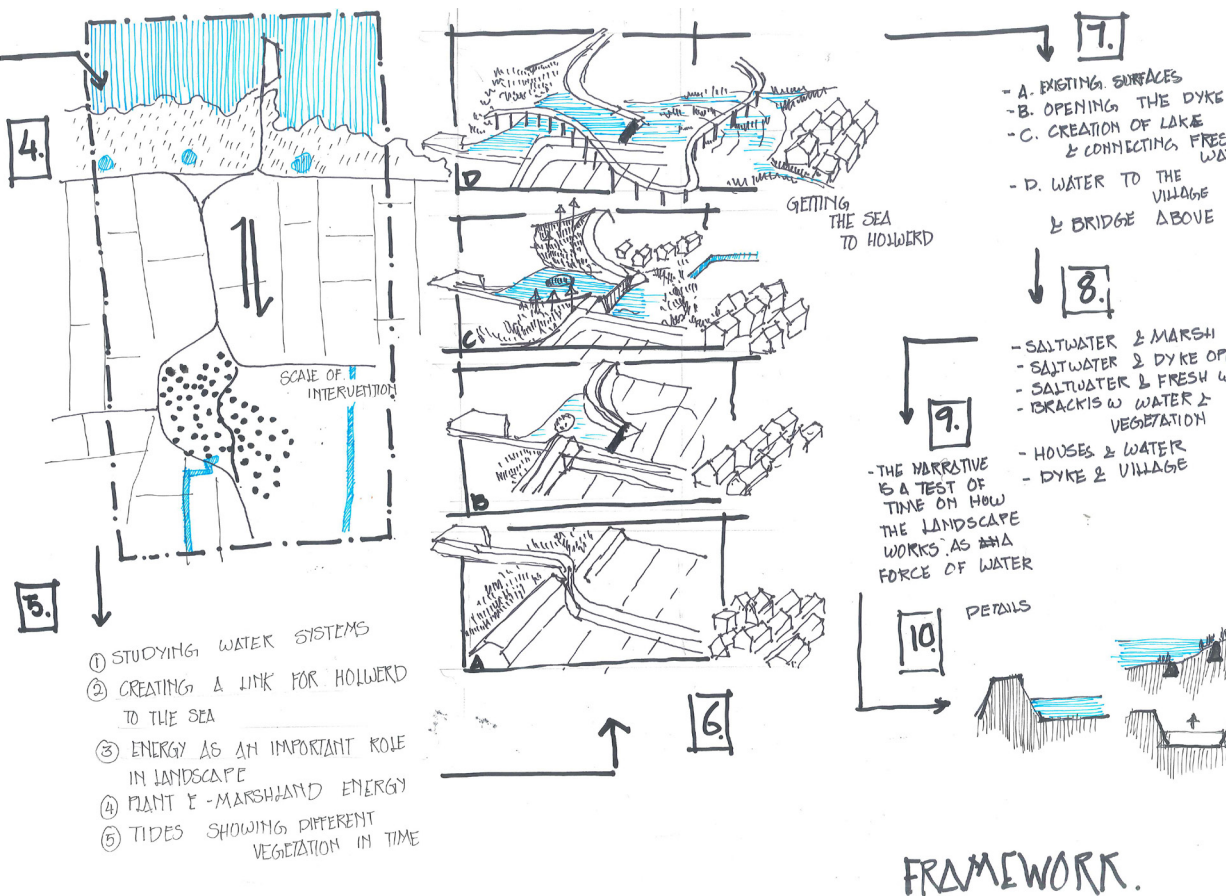 4.
SCALE OF
INTERVENTION
5.
① STUDYING WATER SYSTEMS
② CREATING A LINK FOR HOLWERD
TO THE SEA
③ ENERGY AS AN IMPORTANT ROLE
IN LANDSCAPE
④ PLANT E - MARSHLAND ENERGY
⑤ TIDES SHOWING DIFFERENT
VEGETATION IN TIME
D
GETTING
THE SEA
TO HOLWERD
C
B
A
6.
7.
- A. EXISTING SURFACES
- B. OPENING THE DYKE
- C. CREATION OF LAKE
& CONNECTING FRES
WA
- D. WATER TO THE
VILLAGE
& BRIDGE ABOVE
8.
- SALTWATER & MARSH
- SALTWATER & DYKE OP
- SALTWATER & FRESH W
- BRACKISW WATER &
VEGETATION
- HOUSES & WATER
- DYKE & VILLAGE
9.
- THE NARRATIVE
IS A TEST OF
TIME ON HOW
THE LANDSCAPE
WORKS AS A
FORCE OF WATER
10.
DETAILS
FRAMEWORK.